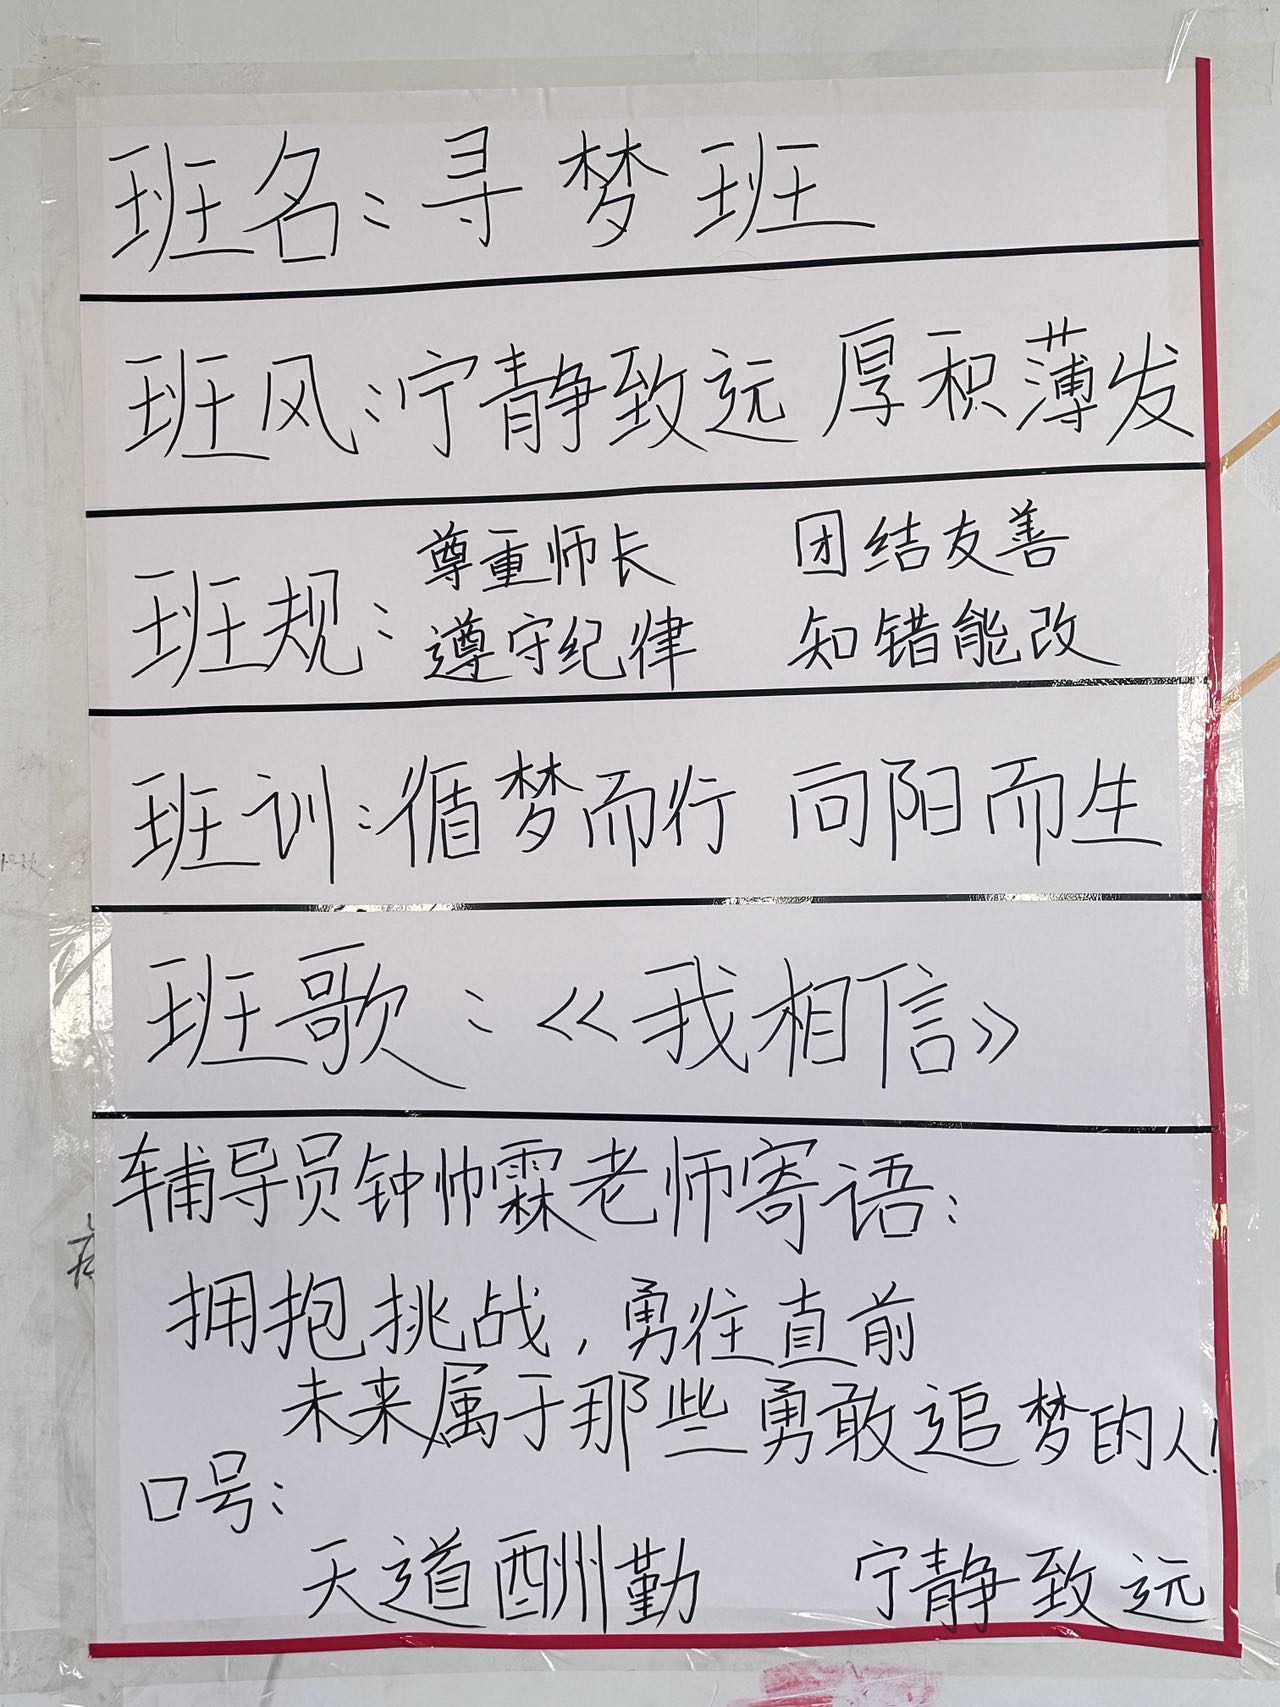 班名：寻梦班
班风：宁静致远 厚积薄发
班规：尊重师长 团结友善
遵守纪律 知错能改
班训：循梦而行 向阳而生
班歌：《我相信》
辅导员钟帅霖老师寄语：
拥抱挑战，勇往直前
未来属于那些勇敢追梦的人！
口号：
天道酬勤 宁静致远